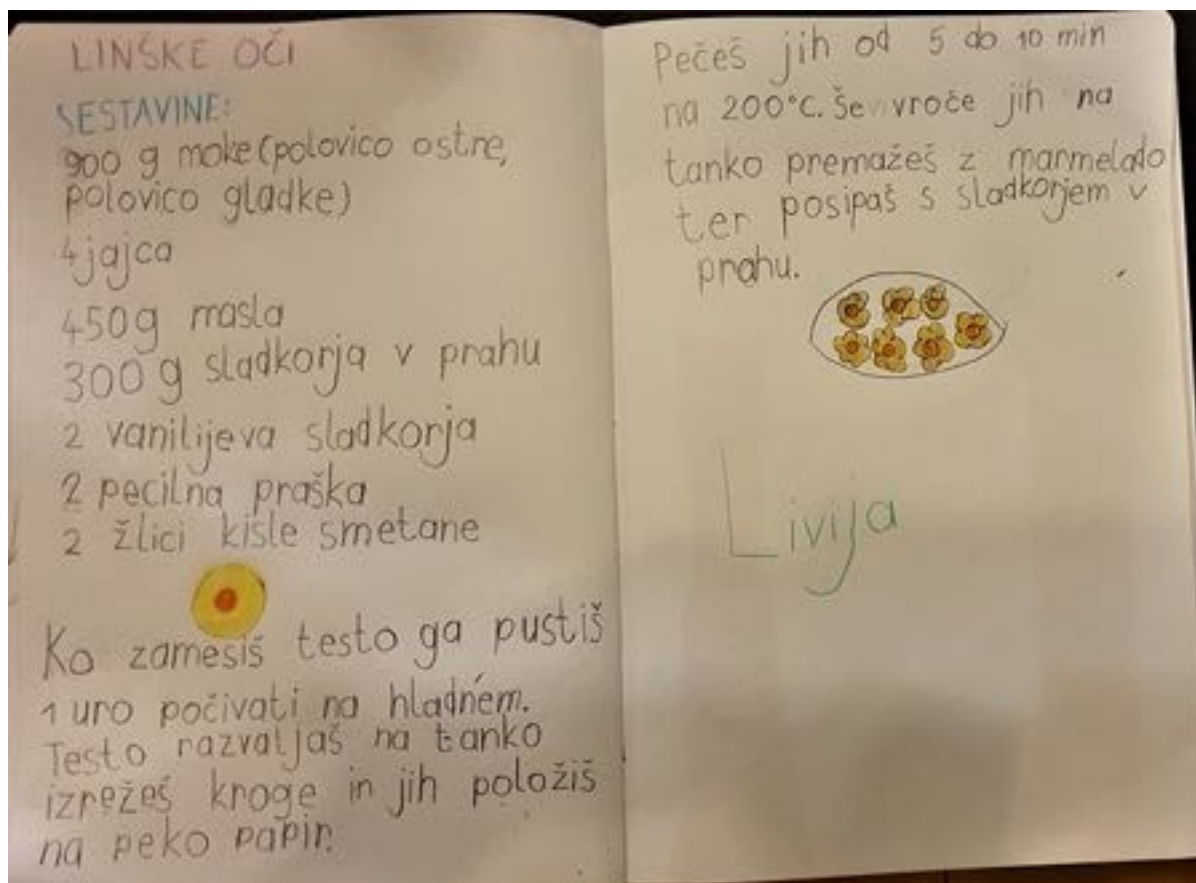 LINŠKE OČI
SESTAVINE:
900 g moke (polovico ostre,
polovico gladke)
4 jajca
450 g masla
300 g sladkorja v prahu
2 vanilijeva sladkorja
2 pecilna praška
2 žlici kisle smetane
Ko zamesiš testo ga pustiš
1 uro počivati na hladnem.
Testo razvaljaš na tanko
izrežeš kroge in jih položiš
na peko papir.
Pečeš jih od 5 do 10 min
na 200°C. Še vroče jih na
tanko premažeš z marmelado
ter posipaš s sladkorjem v
prahu.
Livija